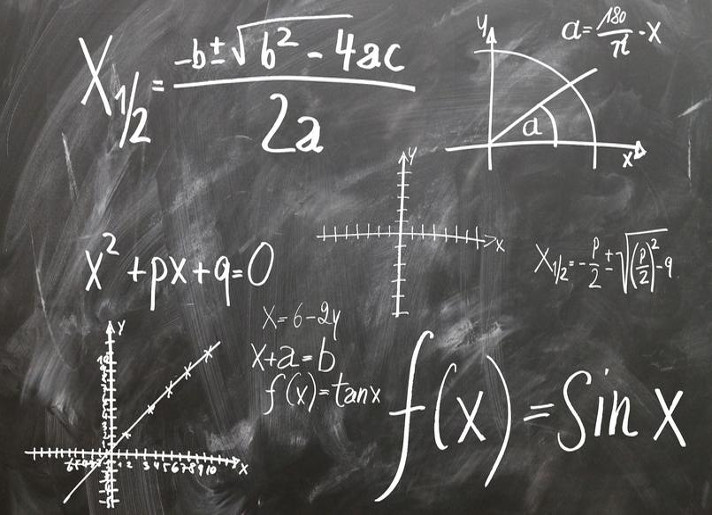 X1/2 = -b±√b²-4ac / 2a
y
a=180/π·x
a
x
y
x
x²+px+q=0
X1/2=-p/2±√(p/2)²-q
x=6-2y
x+a=b
f(x)=tanx
f(x)=Sin x
y
1 2 3 4 5 6 7 8 9 10
x